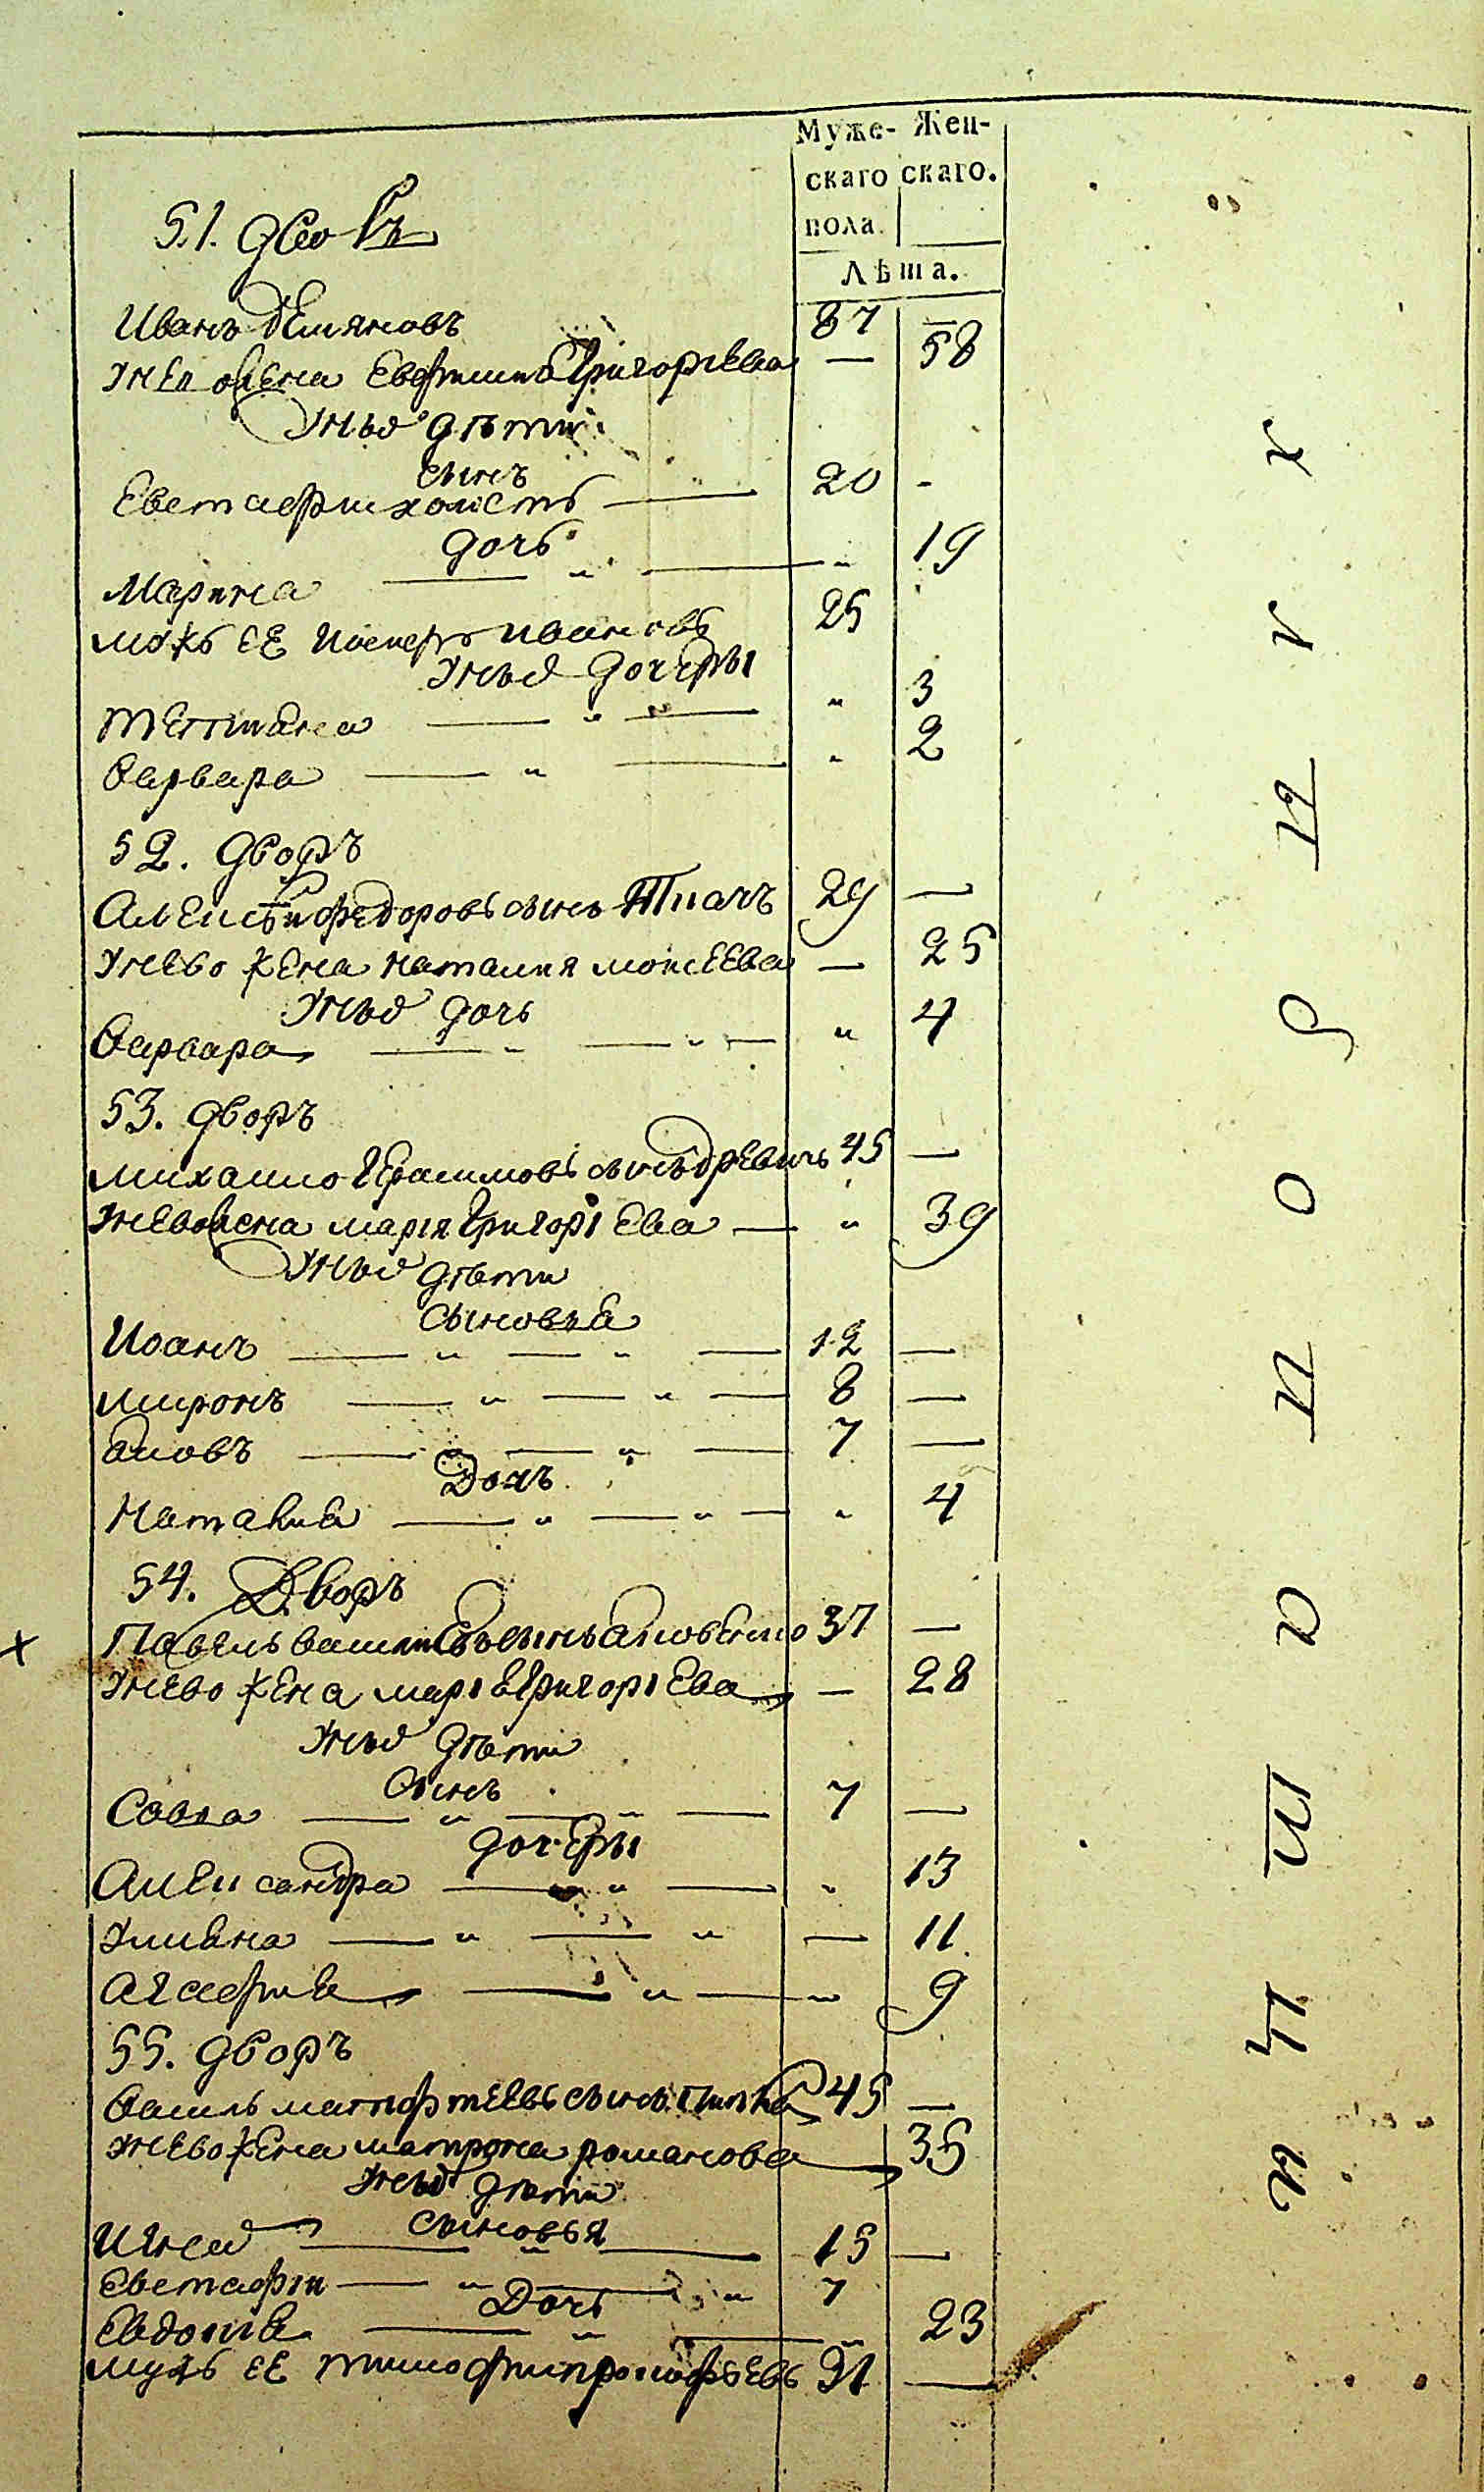 Муже- Жен-
скаго скаго.
пола.
Лѣта.
51. дворъ
Иванъ демяновъ 87 —
Унего жена Евфимия Григоріева — 58
Унихъ дѣти
сынъ
Евстафи холостъ — 20 -
дочь
Марина — " — " 19
мужъ ее Иосифъ ивановъ 25
Унихъ дочеры
Татияна — " — " 3
Варвара — " — " 2
52. дворъ
Алексѣй федоровъ сынъ Ткачъ 29 —
Унево жена наталия моисеева — 25
Унихъ дочь
Варвара — " — " — " 4
53. дворъ
михаило Герасимовъ сынъ древичь 45 —
Унево жена марія Григоріева — " 39
Унихъ дѣти
сыновья
Иоанъ — " — " — 12 —
миронъ — " — " — 8 —
яковъ — " — " — 7 —
Дочь
Наталия — " — " — " 4
54. Дворъ
х Павелъ василиевъ сынъ яковенко 37 —
Унево жена марія Григоріева — 28
Унихъ дѣти
Сынъ
Савва — " — " — 7 —
дочеры
Александра — " — " 13
Улияна — " — " — 11
Агафия — " — " 9
55. дворъ
Василь матфтеевъ сынъ 45 —
Унево жена матрона романова 35
Унихъ дѣти
сыновья
Игнат — " — 15 —
Евстафіи — " — " 7
Дочь
Евдокия — " — " 23
мужъ ее тимофи прокофьевъ 31 —